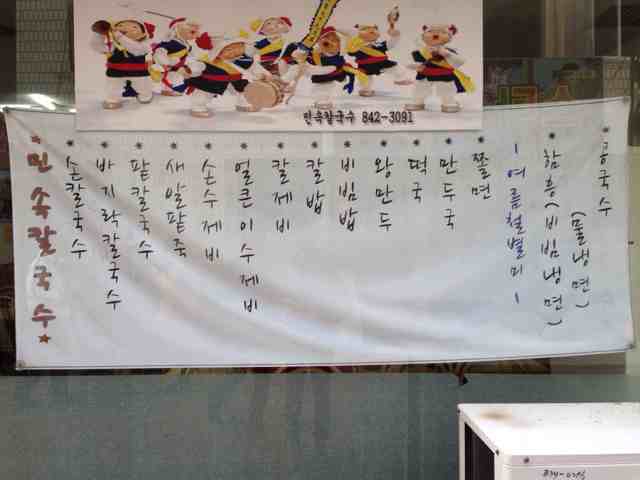 민속칼국수 842-3091
민속칼국수
손칼국수
바지락칼국수
팥칼국수
새알팥죽
손수제비
얼큰이수제비
칼제비
칼밥
비빔밥
왕만두
떡국
만두국
쫄면
-여름철별미-
함흥(비빔냉면)
(물냉면)
콩국수